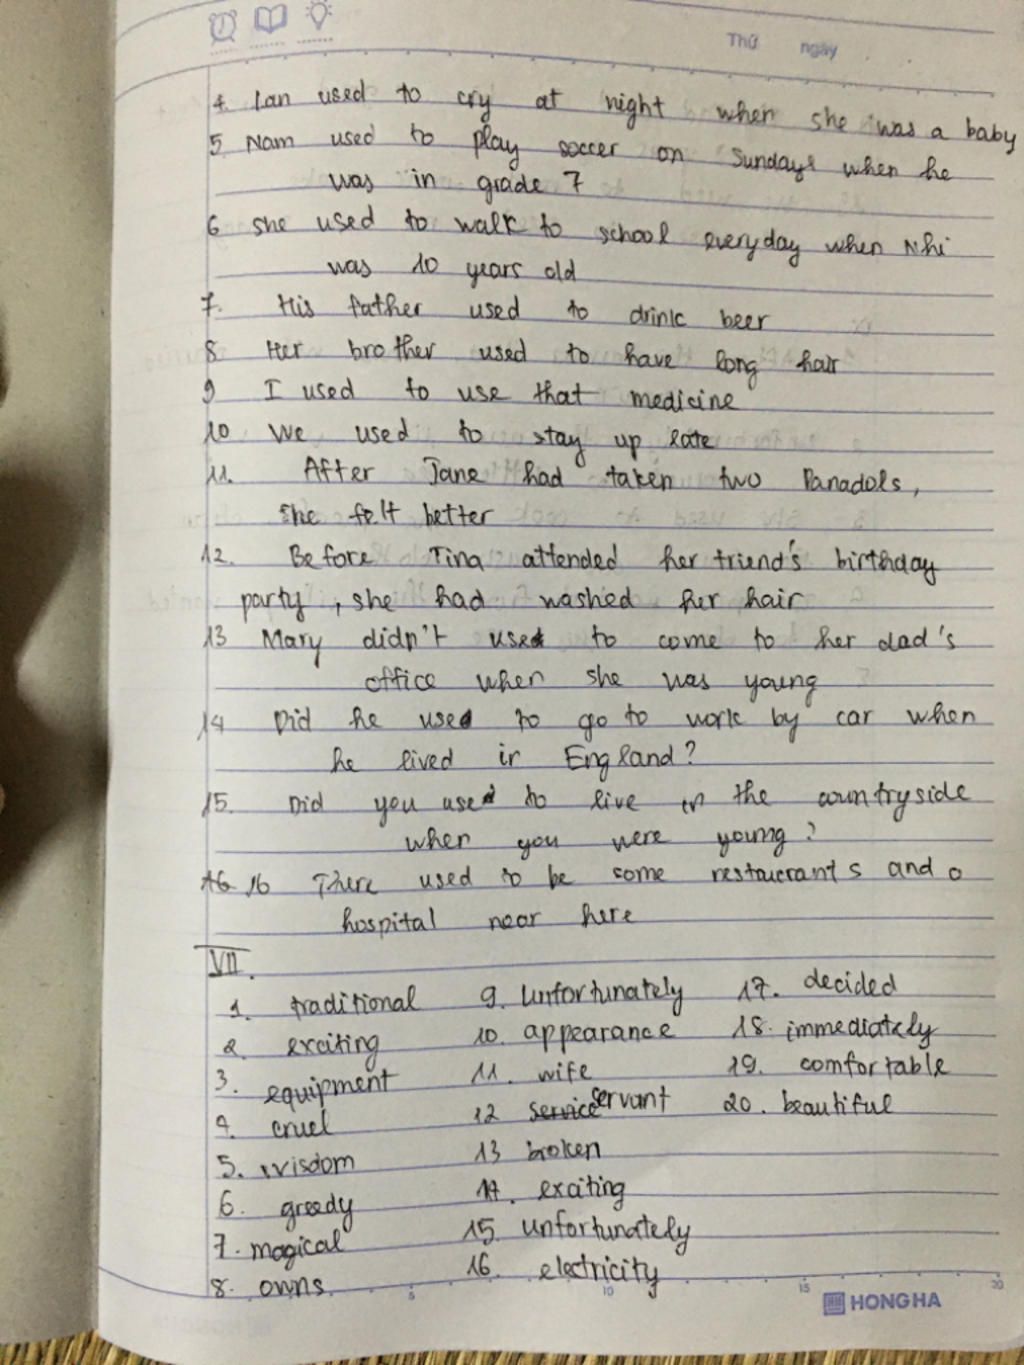 Thứ ngày
4. Lan used to cry at night when she was a baby
5 Nam used to play soccer on Sundays when he
was in grade 7
6 she used to walk to school everyday when Nhi
was 10 years old
7. His father used to drink beer
8 Her brother used to have long hair
9 I used to use that medicine
10 We used to stay up late
11. After Jane had taken two Panadols,
she felt better
12. Before Tina attended her friend's birthday
party, she had washed her hair
13 Mary didn't use to come to her dad's
office when she was young
14 Did he use to go to work by car when
he lived in England?
15. Did you use to live in the countryside
when you were young?
16 There used to be some restaurants and a
hospital near here
VII.
1. traditional 9. Unfortunately 17. decided
2. exciting 10. appearance 18. immediately
3. equipment 11. wife 19. comfortable
4. cruel 12 servant 20. beautiful
5. wisdom 13 broken
6. greedy 14. exciting
7. magical 15. unfortunately
8. owns 16. electricity
5 10 15 20
HONG HA